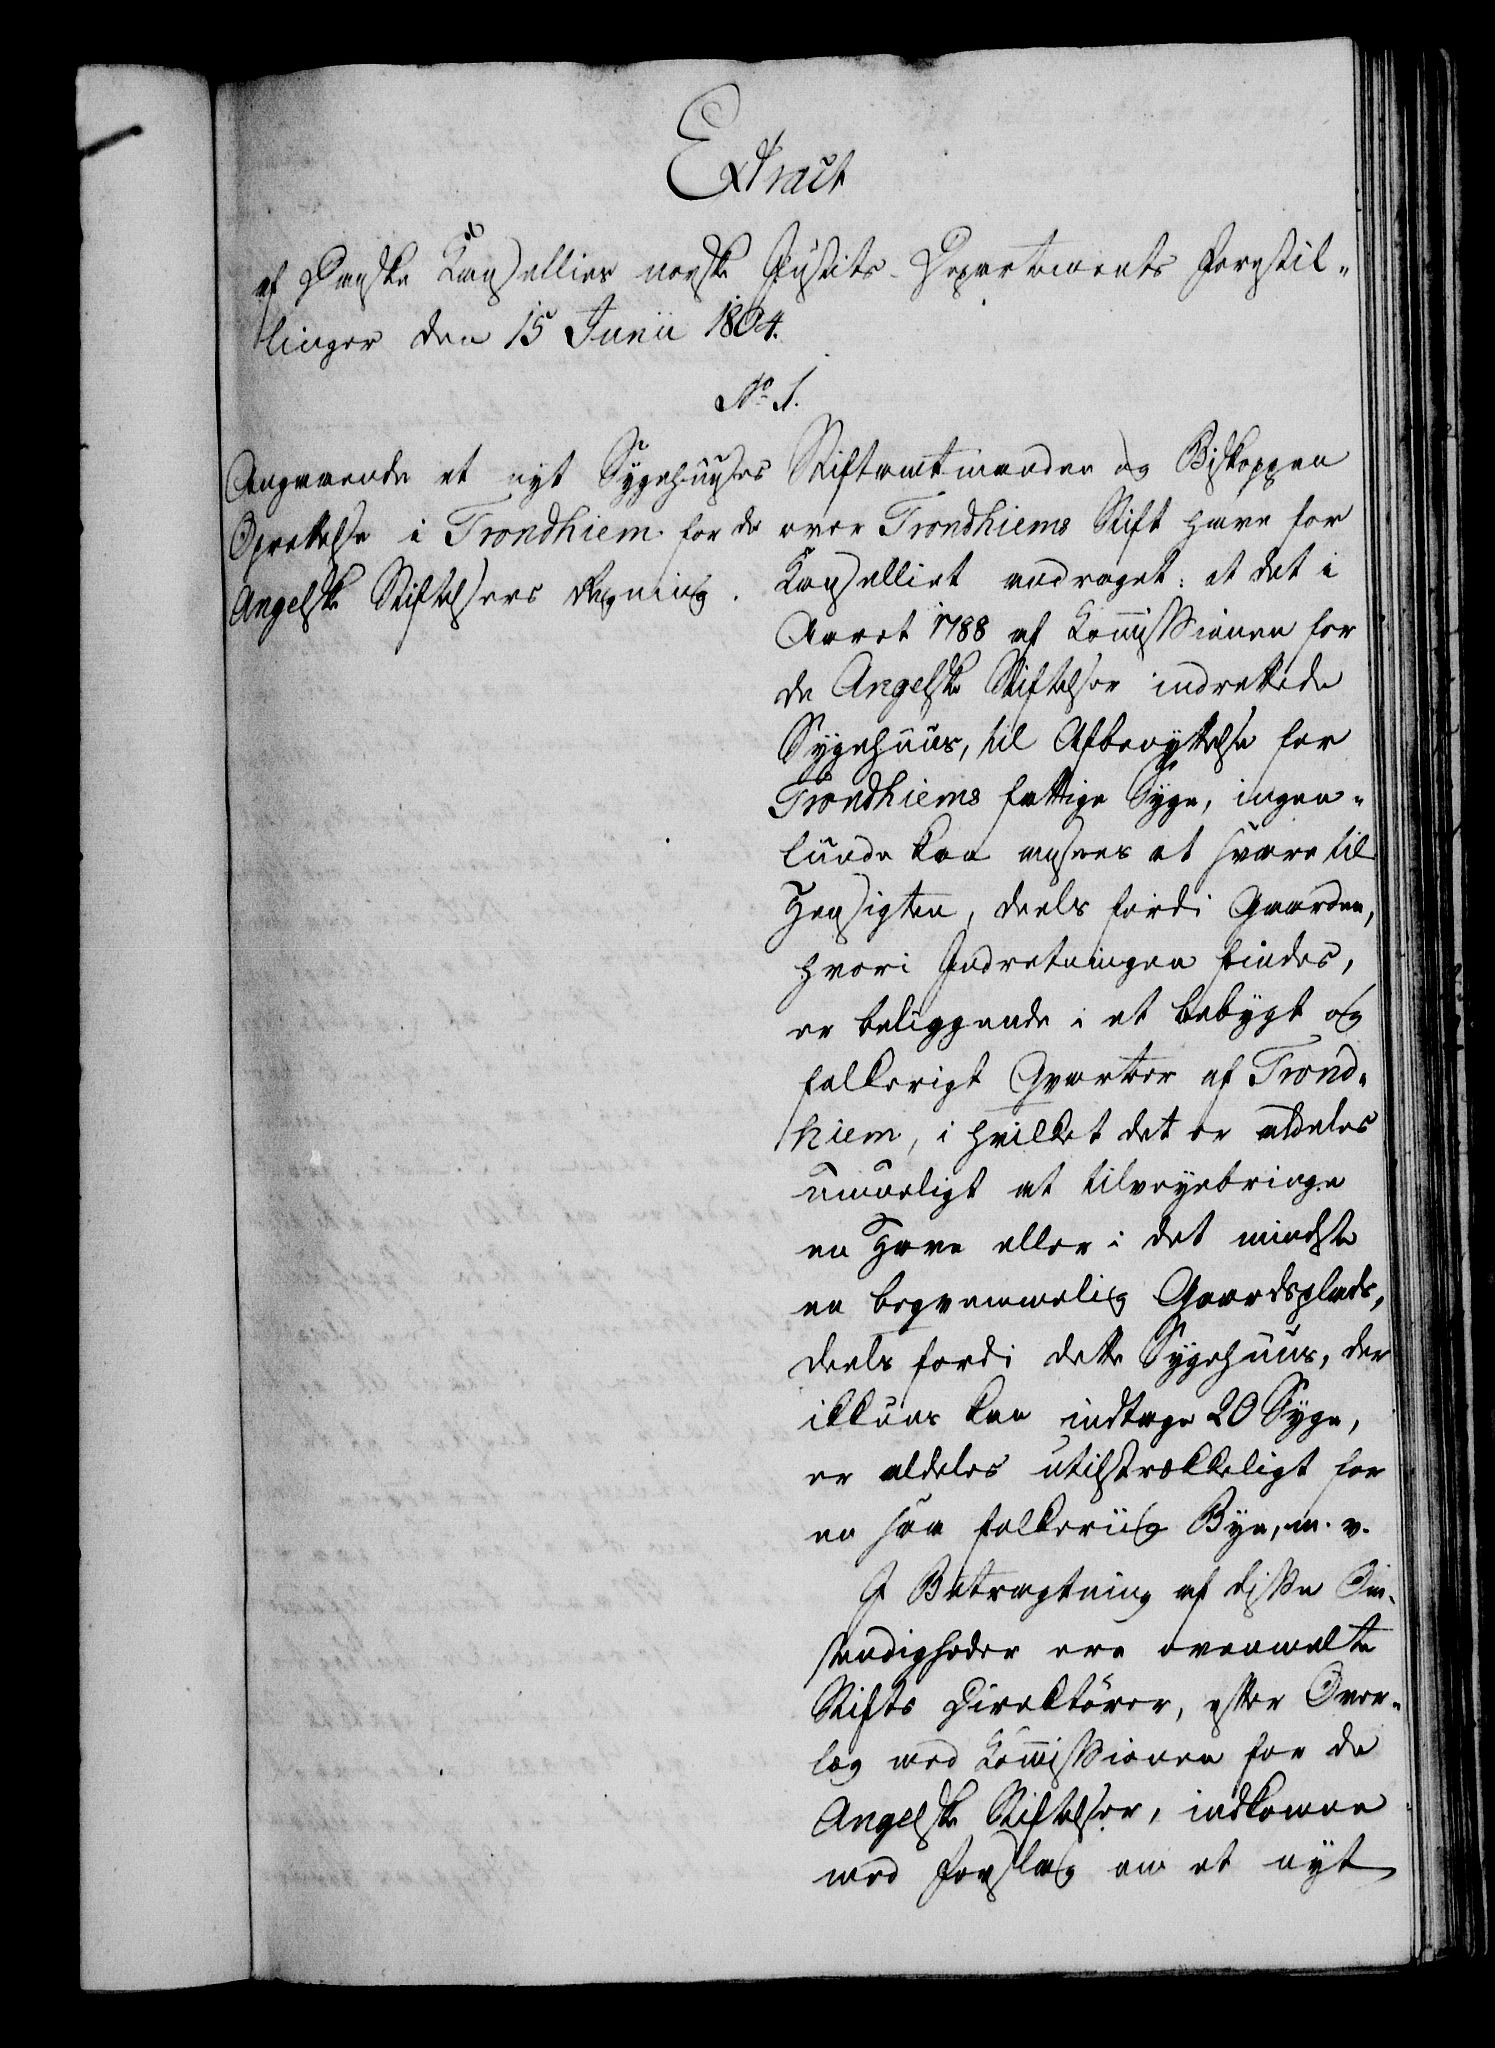 Extract
af Danske Kanselliets norske Justits-Departements Forestil-
linger den 15 Junii 1804.
No 1.
Angaaende et nyt Sygehuuses
Oprettelse i Trondhiem for de
Angelske Stiftelsers Regning.
Stiftamtmanden og Biskoppen
over Trondhiems Stift have for
Kanselliet andraget: at det i
Aaret 1788 af Kommissionen for
de Angelske Stiftelser indrettede
Sygehuus, til Afbenyttelse for
Trondhiems fattige Syge, ingen-
lunde kan ansees at svare til
Hensigten, deels fordi Gaarden,
hvori Indretningen findes,
er beliggende i et bebygt og
folkerigt Qvarteer af Trond-
hiem, i hvilket det er aldeles
umueligt at tilveyebringe
en Have eller i det mindste
en beqvemmelig Gaardsplads,
deels fordi dette Sygehuus, der
ikkuns kan indtage 20 Syge,
er aldeles utilstrækkeligt for
en saa folkeriig Bye, m. v.
I Betragtning af disse Om-
stændigheder ere ovenmeldte
Stifts Direktörer, efter Over-
læg med Kommissionen for de
Angelske Stiftelser, indkomne
med Forslag om et nyt